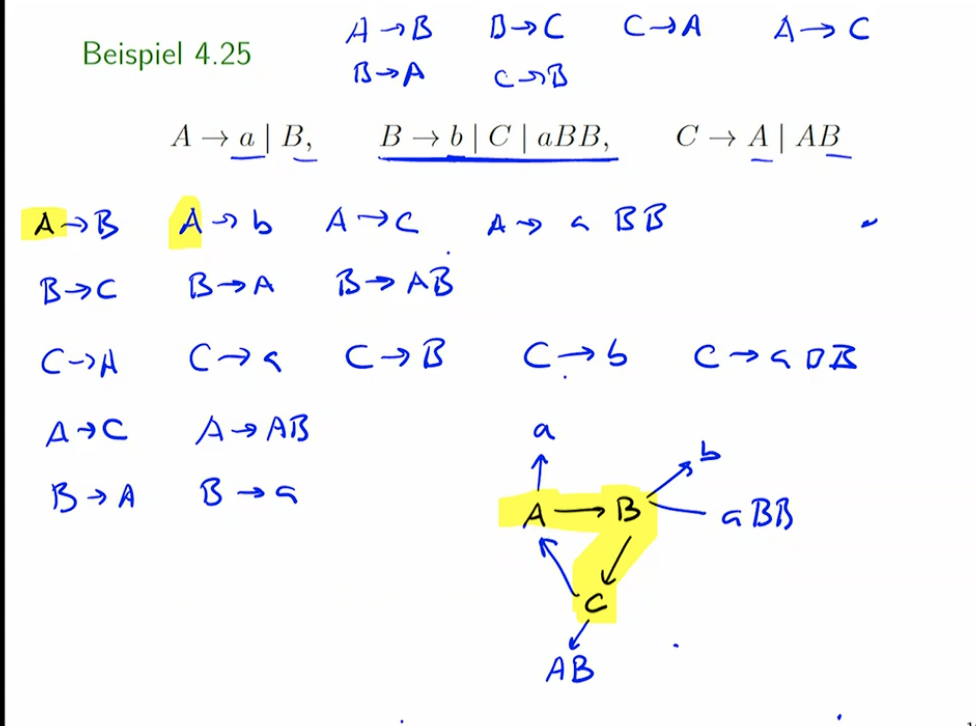 A → B B → C C → A A → C
Beispiel 4.25
B → A C → B
A → a | B, B → b | C | aBB, C → A | AB
A → B A → b A → C A → a BB
B → C B → A B → AB
C → A C → a C → B C → b C → a BB
A → C A → AB
B → A B → a
a
b
A → B
a BB
C
AB